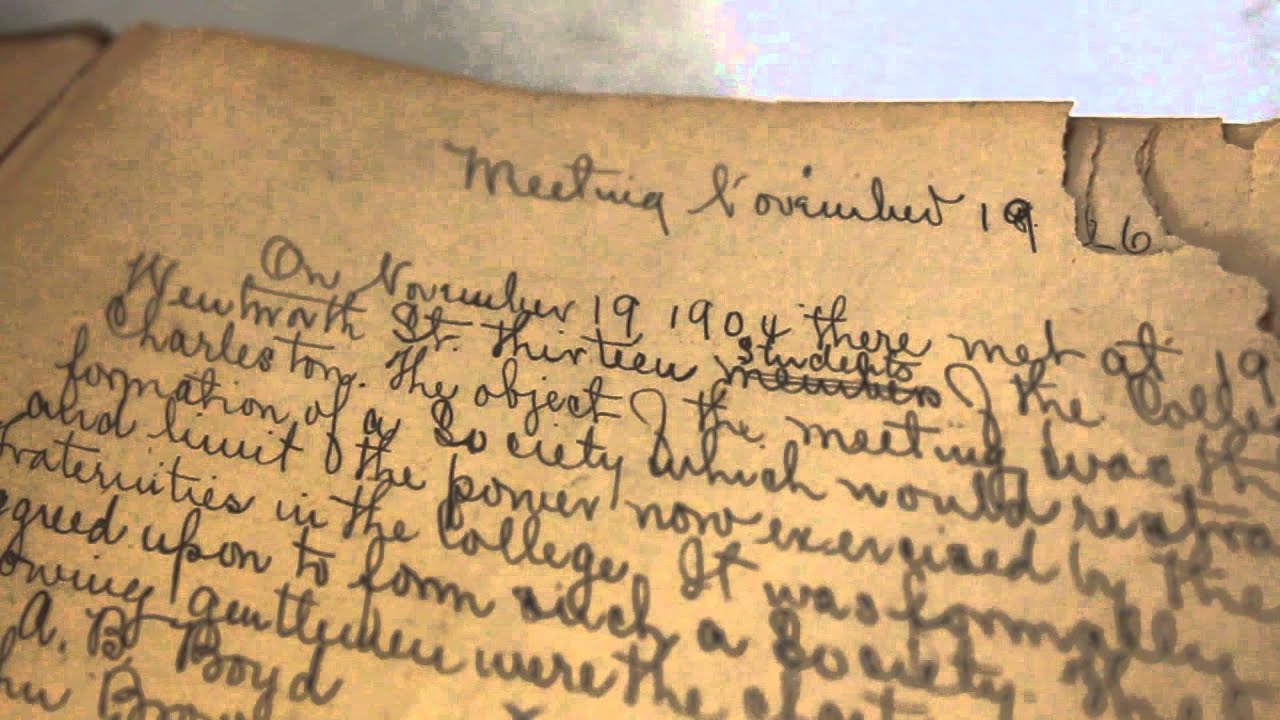 Meeting November 19 26
On November 19 1904 there met at 19
Wentworth St. thirteen students members of the Colle
Charleston. The object of the meeting was th
formation of a Society which would restra
and limit the power now exercised by the
fraternities in the College. It was formally
greed upon to form such a Society. The
owing gentlemen were the
A. B. Boyd